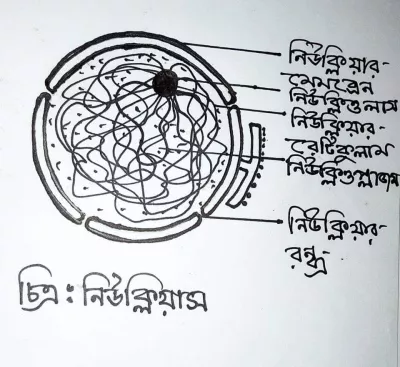 নিউক্লিয়ার-
মেমব্রেন
নিউক্লিওলাস
নিউক্লিয়ার-
রেটিকুলাম
নিউক্লিওপ্লাজম
নিউক্লিয়ার-
রন্ধ্র
চিত্র : নিউক্লিয়াস